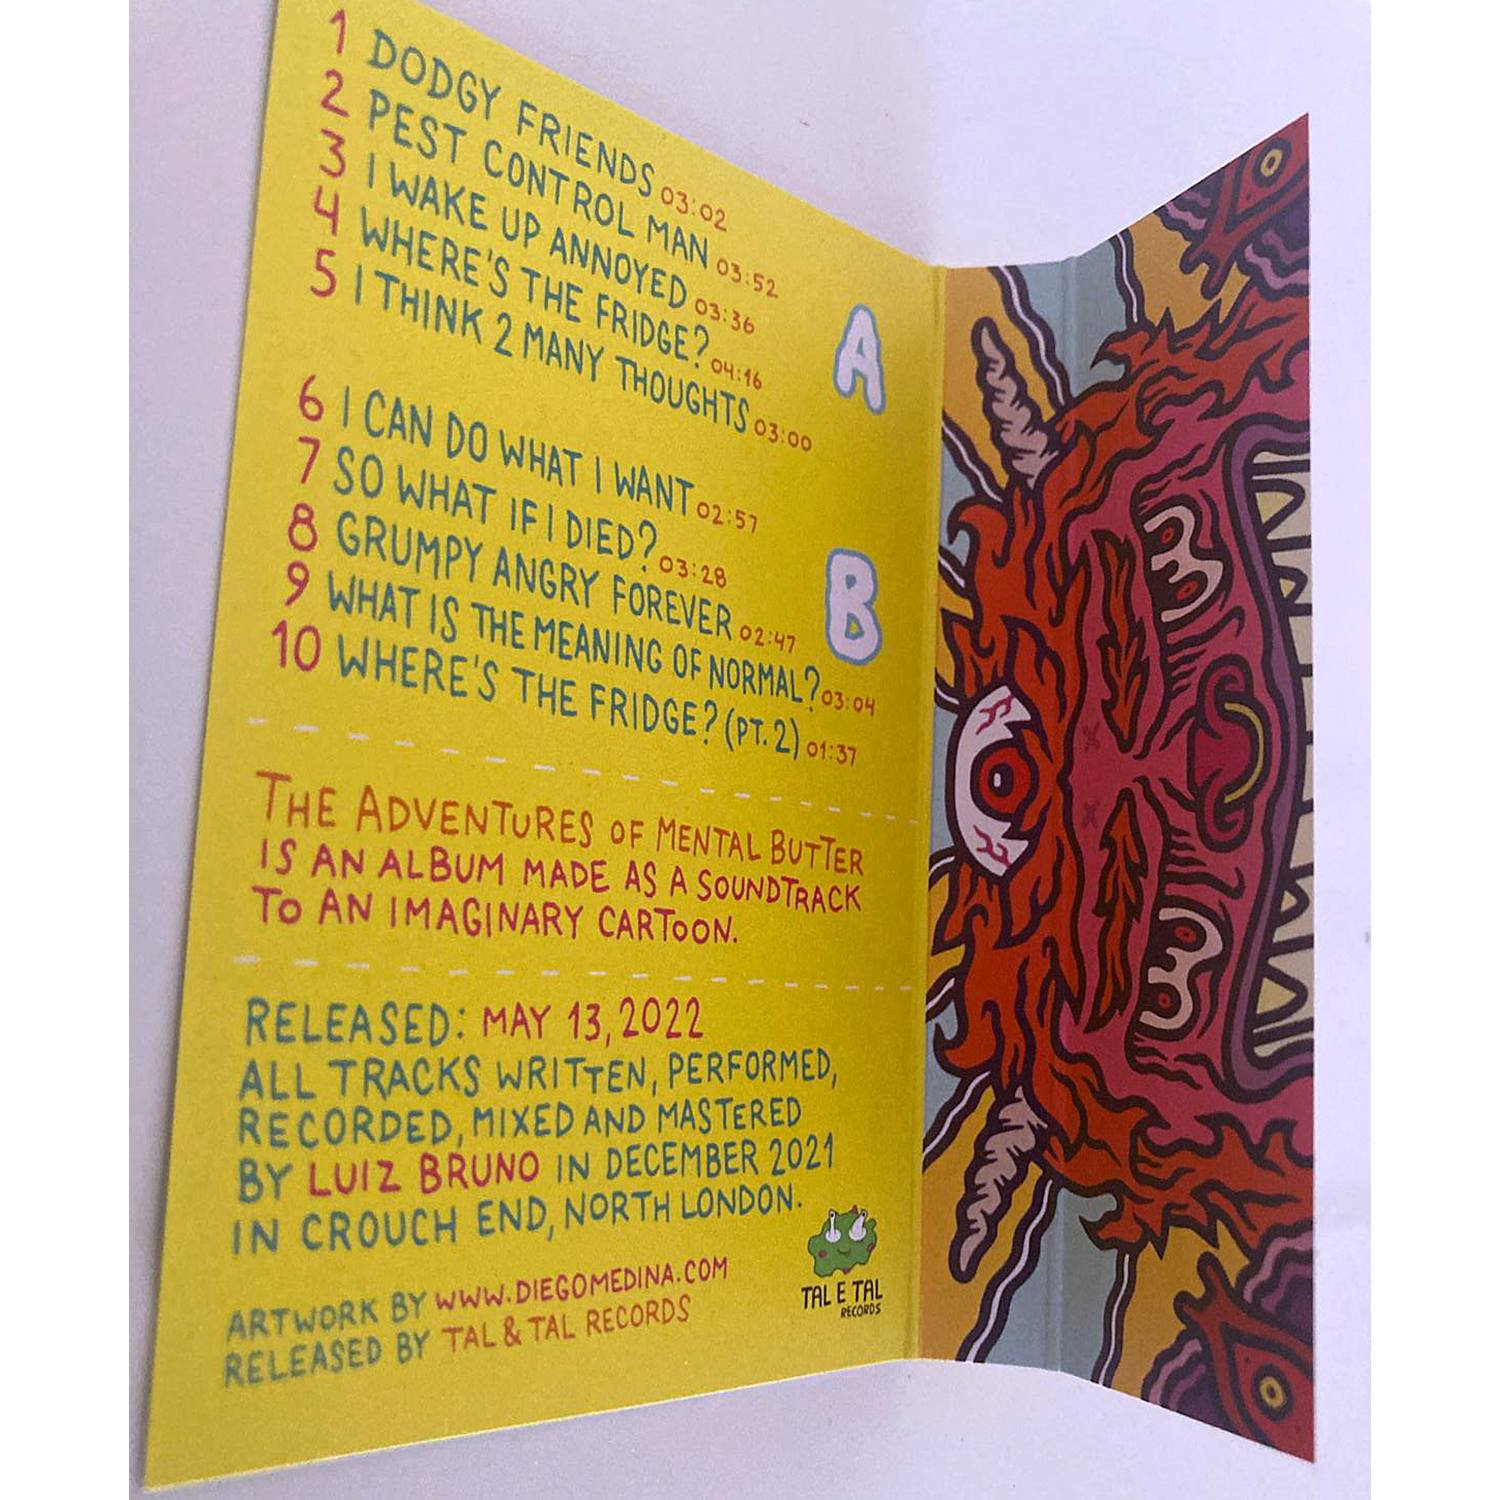 1 DODGY FRIENDS 03:02
2 PEST CONTROL MAN 03:52
3 I WAKE UP ANNOYED 03:36
4 WHERE'S THE FRIDGE? 04:16
5 I THINK 2 MANY THOUGHTS 03:00
A
6 I CAN DO WHAT I WANT 02:57
7 SO WHAT IF I DIED? 03:28
8 GRUMPY ANGRY FOREVER 02:47
9 WHAT IS THE MEANING OF NORMAL? 03:04
10 WHERE'S THE FRIDGE? (PT. 2) 01:37
B
THE ADVENTURES OF MENTAL BUTTER
IS AN ALBUM MADE AS A SOUNDTRACK
TO AN IMAGINARY CARTOON.
RELEASED: MAY 13, 2022
ALL TRACKS WRITTEN, PERFORMED,
RECORDED, MIXED AND MASTERED
BY LUIZ BRUNO IN DECEMBER 2021
IN CROUCH END, NORTH LONDON.
ARTWORK BY WWW.DIEGOMEDINA.COM
RELEASED BY TAL & TAL RECORDS
TAL E TAL
RECORDS